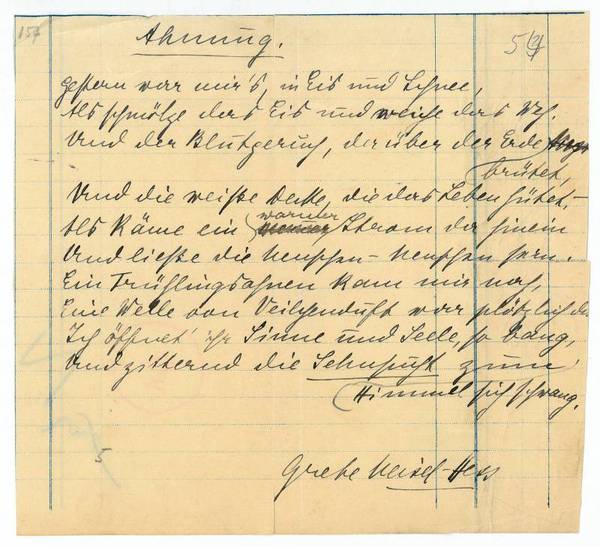 157
Ahnung.
5
Gestern war mir's, in Eis und Schnee,
Als schmölze das Eis und weiche das Weh.
Und der Blutgeruch, der über der Erde
brütet,
Und die weiße Decke, die das Leben hütet. –
Als käme ein
warmer
Strom da hinein
Und ließe die Menschen – Menschen sein.
Ein Frühlingsahnen kam mir nah,
Eine Welle von Veilchenduft war plötzlich da
Ich öffnet' ihr Sinne und Seele, so bang,
Und zitternd die Sehnsucht zum
Himmel sich schwang.
5
Grete Meisel-Hess